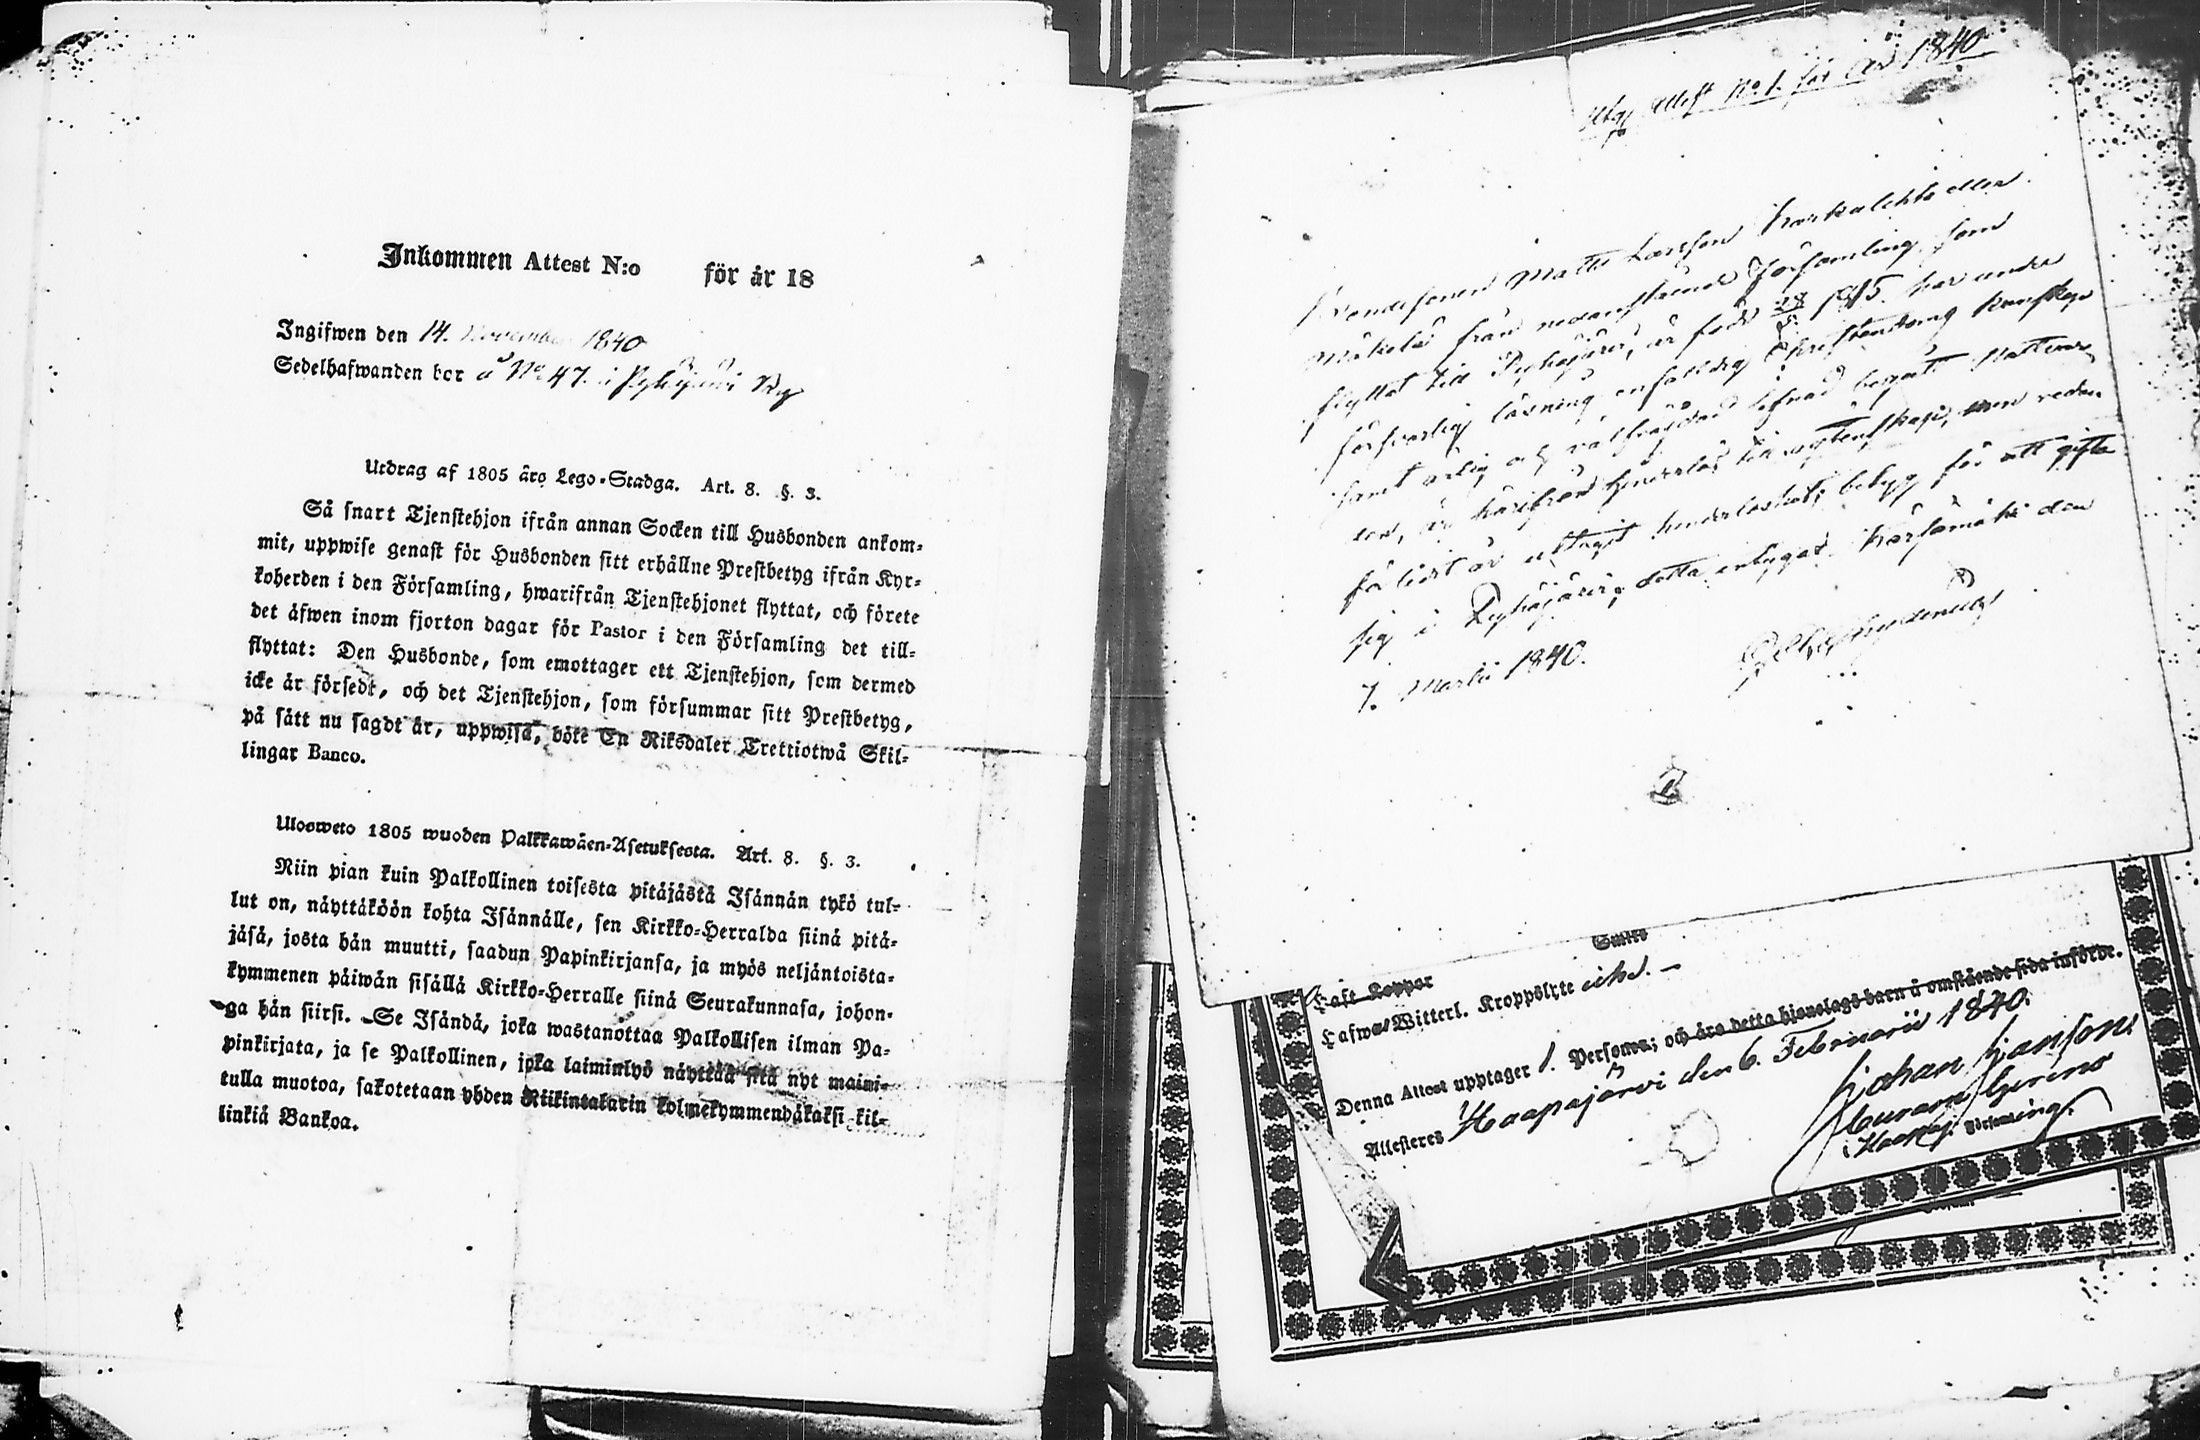 Inkommen Attest N:o för år 18
Ingifwen den 14. November 1840
Sedelhafwanden bor å No 47. i Pyhäjärvi By
Utdrag af 1805 års Lego-Stadga. Art. 8. §. 3.
Så snart Tjenstehjon ifrån annan Socken till Husbonden ankom-
mit, uppwise genast för Husbonden sitt erhållne Prestbetyg ifrån Kyr-
koherden i den Församling, hwarifrån Tjenstehjonet flyttat, och förete
det äfwen inom fjorton dagar för Pastor i den Församling det till-
flyttat: Den Husbonde, som emottager ett Tjenstehjon, som dermed
icke är försedt, och det Tjenstehjon, som försummar sitt Prestbetyg,
på sätt nu sagdt är, uppwisa, böte En Riksdaler Trettiotwå Skil-
lingar Banco.
Ulosweto 1805 wuoden Palkkawäen-Asetuksesta. Art. 8. §. 3.
Niin pian kuin Palkollinen toisesta pitäjästä Isännän tykö tul-
lut on, näyttäköön kohta Isännälle, sen Kirkko-Herralda siinä pitä-
jäsä, josta hän muutti, saadun Papinkirjansa, ja myös neljäntoista-
kymmenen päiwän sisällä Kirkko-Herralle siinä Seurakunnasa, johon-
ga hän siirsi. Se Isändä, joka wastanottaa Palkollisen ilman Pa-
pinkirjata, ja se Palkollinen, joka laiminlyö näyttää sitä nyt maini-
tulla muotoa, sakotetaan yhden Riikintalarin kolmekymmendäkaksi kil-
linkiä Bankoa.
Attest No 1. för År 1840
Bondesonen Matts Larsson Karkulehto eller
Mäkelä från nedanstående Församling, som
flyttat till Pyhäjärvi, är född 28/5 1815. har under
försvarlig läsning enfaldig Christendoms kunskap
samt ärlig och välfrägdad lefnad begått Nattvar-
den, är härifrån hinderlös till ägtenskap, men redan
förlidit år uttagit hinderlöshets betyg för att gifta
sig i Pyhäjärvi, detta intygas. Kärsämäki den
7. Martii 1840.
Haft Koppor
Hafwa/Witterl. Kroppslyte icke. —
Denna Attest upptager 1. Person; och äro detta hjonelags barn å omstående sida införde.
Attesteres Haapajärvi den 6. Februarii 1840.
Johan Jansson
Församling.